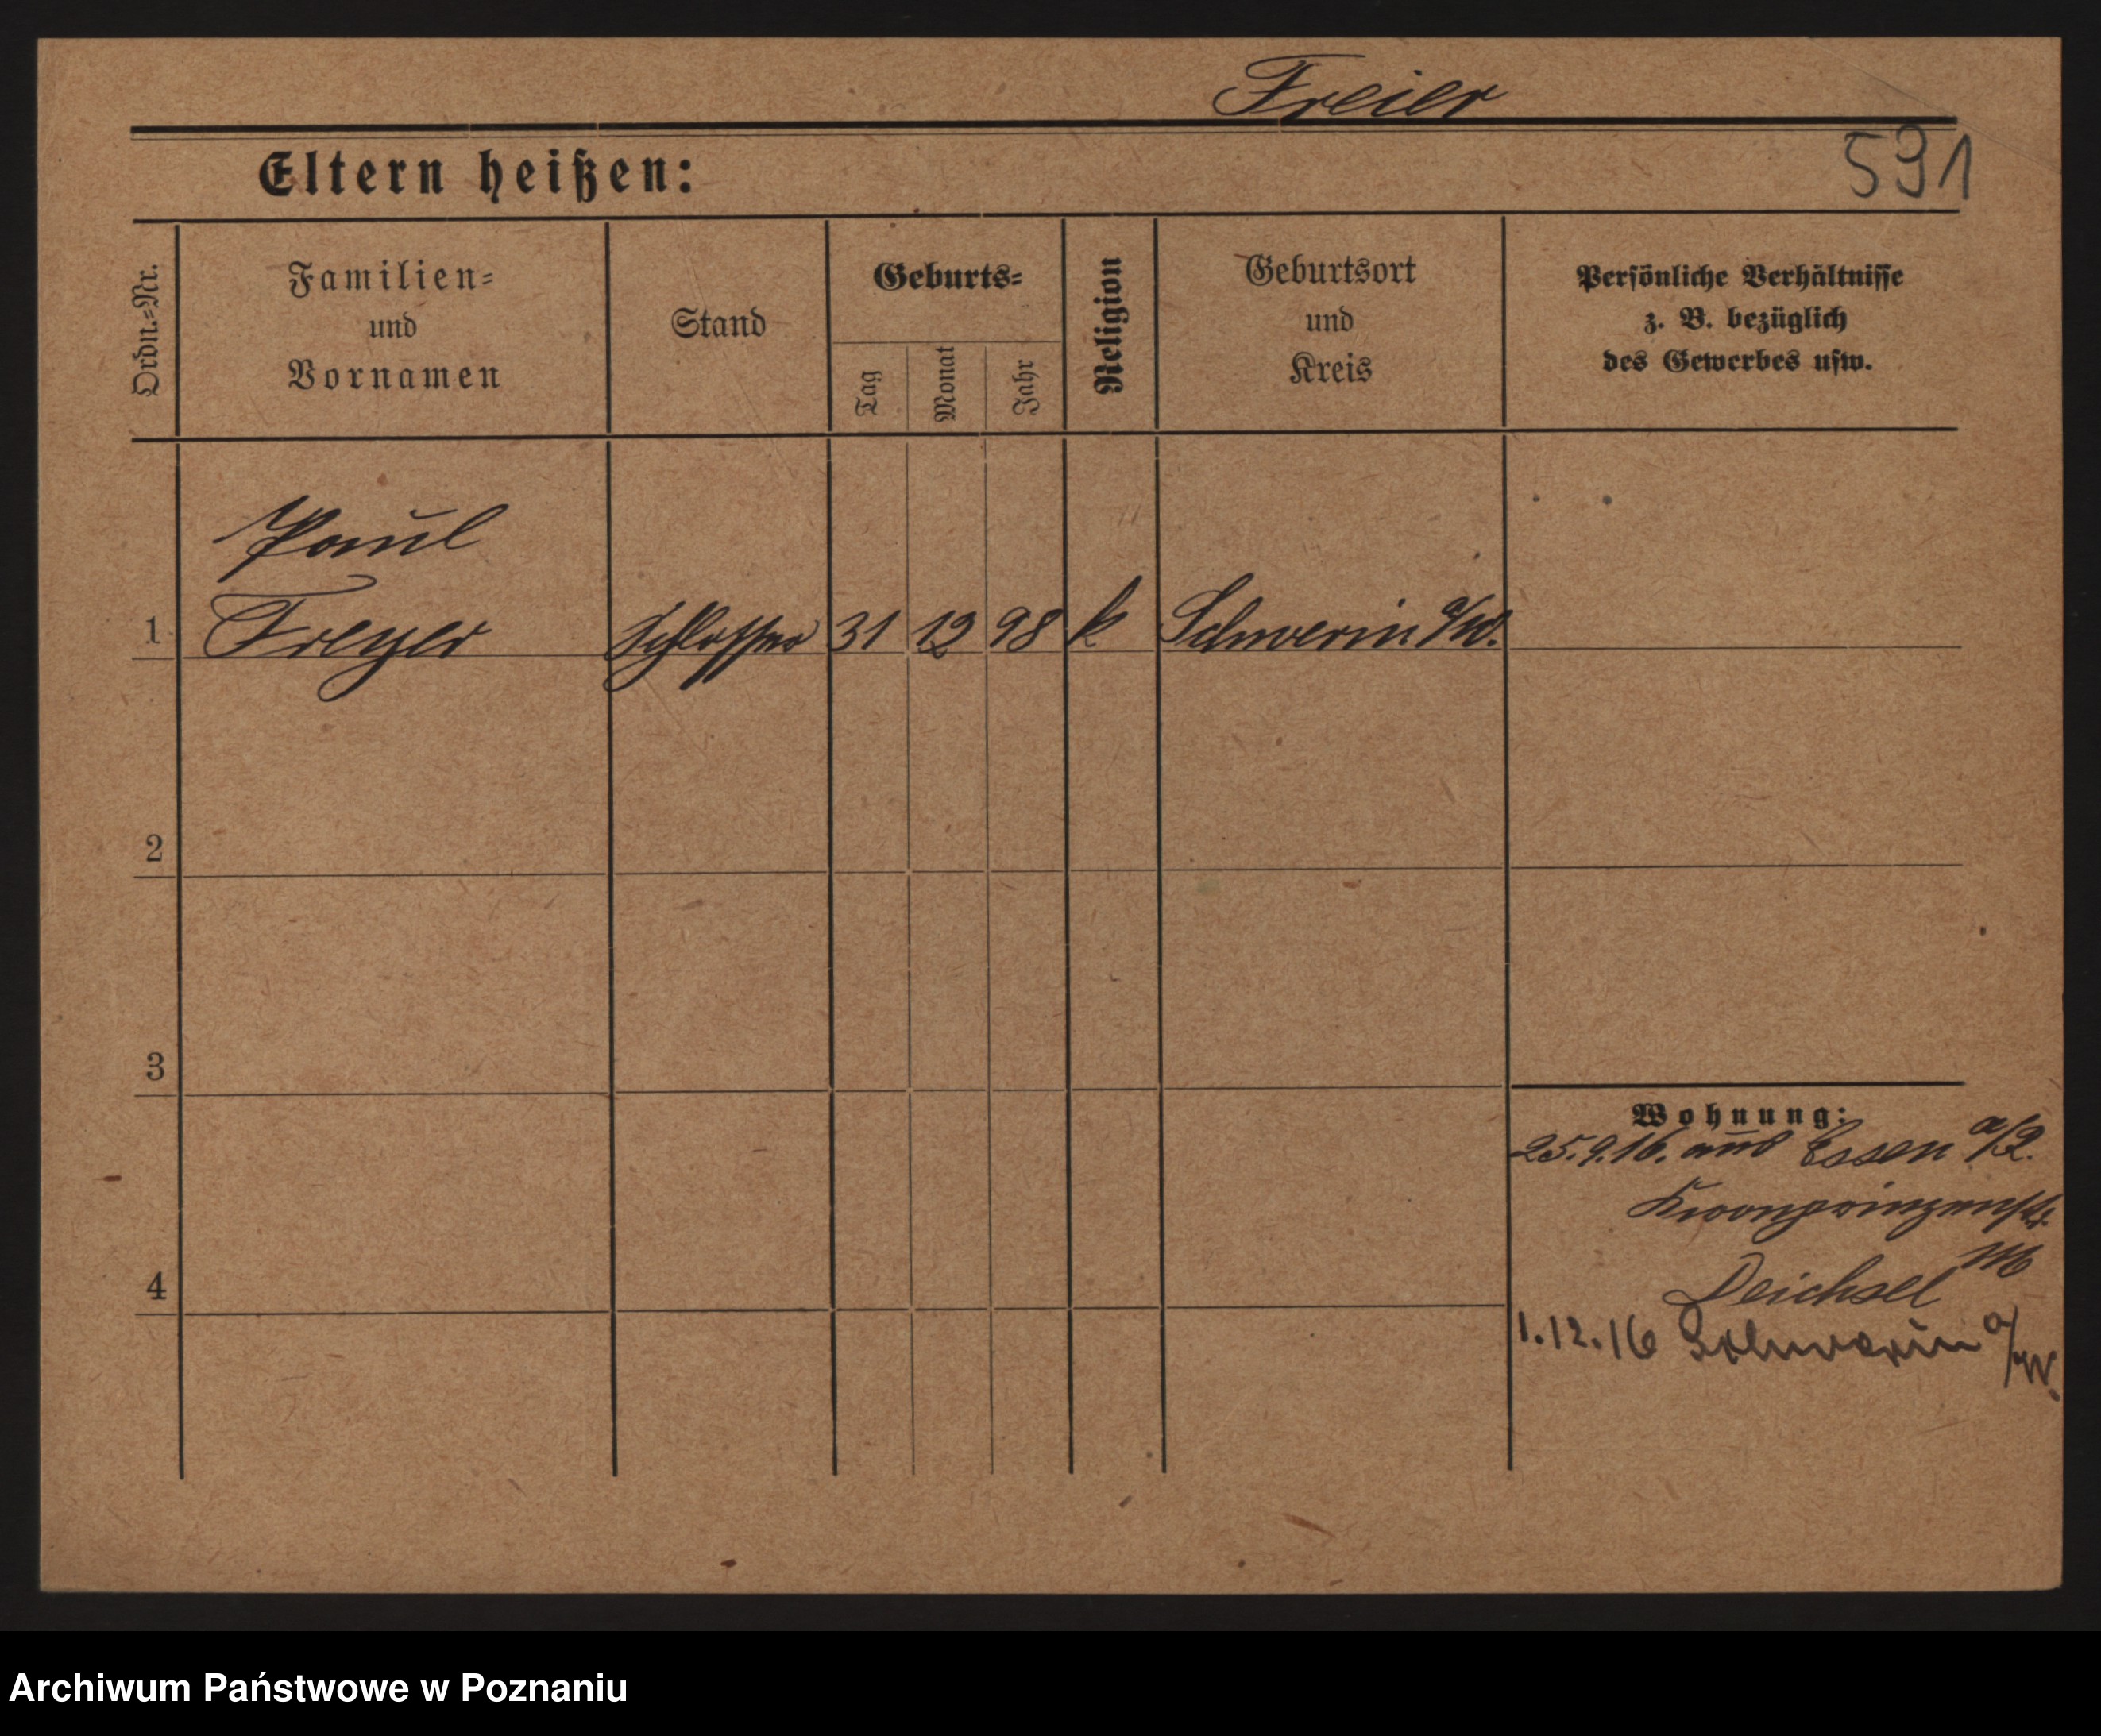 Freier
Eltern heißen:
591
Ordn.=Nr.
Familien=
und
Vornamen
Stand
Geburts=
Tag
Monat
Jahr
Religion
Geburtsort
und
Kreis
Persönliche Verhältnisse
z. B. bezüglich
des Gewerbes usw.
Paul
1 Freyer Schlosser 31 12 98 k Schwerin a/W.
2
3
4
Wohnung:
25.9.16. aus Essen a/R.
Kronprinzenstr.
Deichsel
1.12.16 Schwerin a/W.
Archiwum Państwowe w Poznaniu